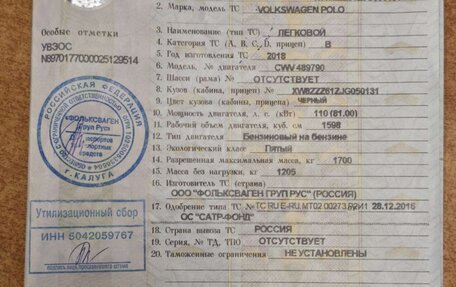 2. Марка, модель ТС VOLKSWAGEN POLO
Особые отметки
УВЭОС
№897017700002512951​4
3. Наименование (тип ТС) ЛЕГКОВОЙ
4. Категория ТС (А, В, С, D, прицеп) B
5. Год изготовления ТС 2018
6. Модель, № двигателя CWV 489790
7. Шасси (рама) № ОТСУТСТВУЕТ
8. Кузов (кабина, прицеп) № XW8ZZZ61ZJG050131
9. Цвет кузова (кабины, прицепа) ЧЕРНЫЙ
10. Мощность двигателя, л. с. (кВт) 110 (81.00)
11. Рабочий объем двигателя, куб. см 1598
12. Тип двигателя Бензиновый на бензине
13. Экологический класс Пятый
14. Разрешенная максимальная масса, кг 1700
15. Масса без нагрузки, кг 1205
16. Изготовитель ТС (страна)
ООО "ФОЛЬКСВАГЕН ГРУП РУС" (РОССИЯ)
17. Одобрение типа ТС № ТС RU E-RU.MT02.00273 28.12.2016
ОС "САТР-ФОНД"
18. Страна вывоза ТС РОССИЯ
19. Серия, № ТД, ТПО ОТСУТСТВУЕТ
20. Таможенные ограничения НЕ УСТАНОВЛЕНЫ
РОССИЙСКАЯ ФЕДЕРАЦИЯ
«ФОЛЬКСВАГЕН
Груп Рус»
средств
г. КАЛУГА
Утилизационный сбор
ИНН 5042059767